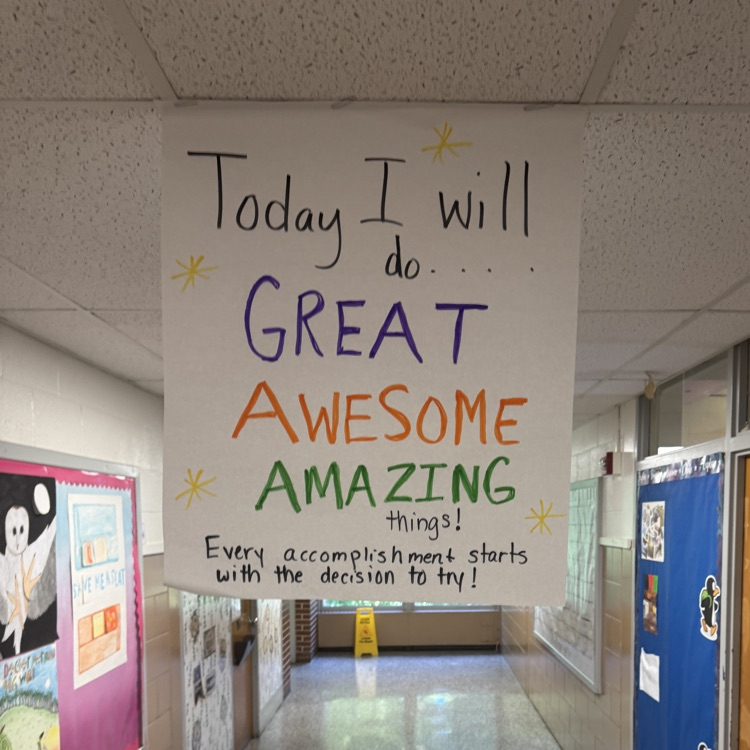 Today I will
do.....
GREAT
AWESOME
AMAZING
things!
Every accomplishment starts
with the decision to try!